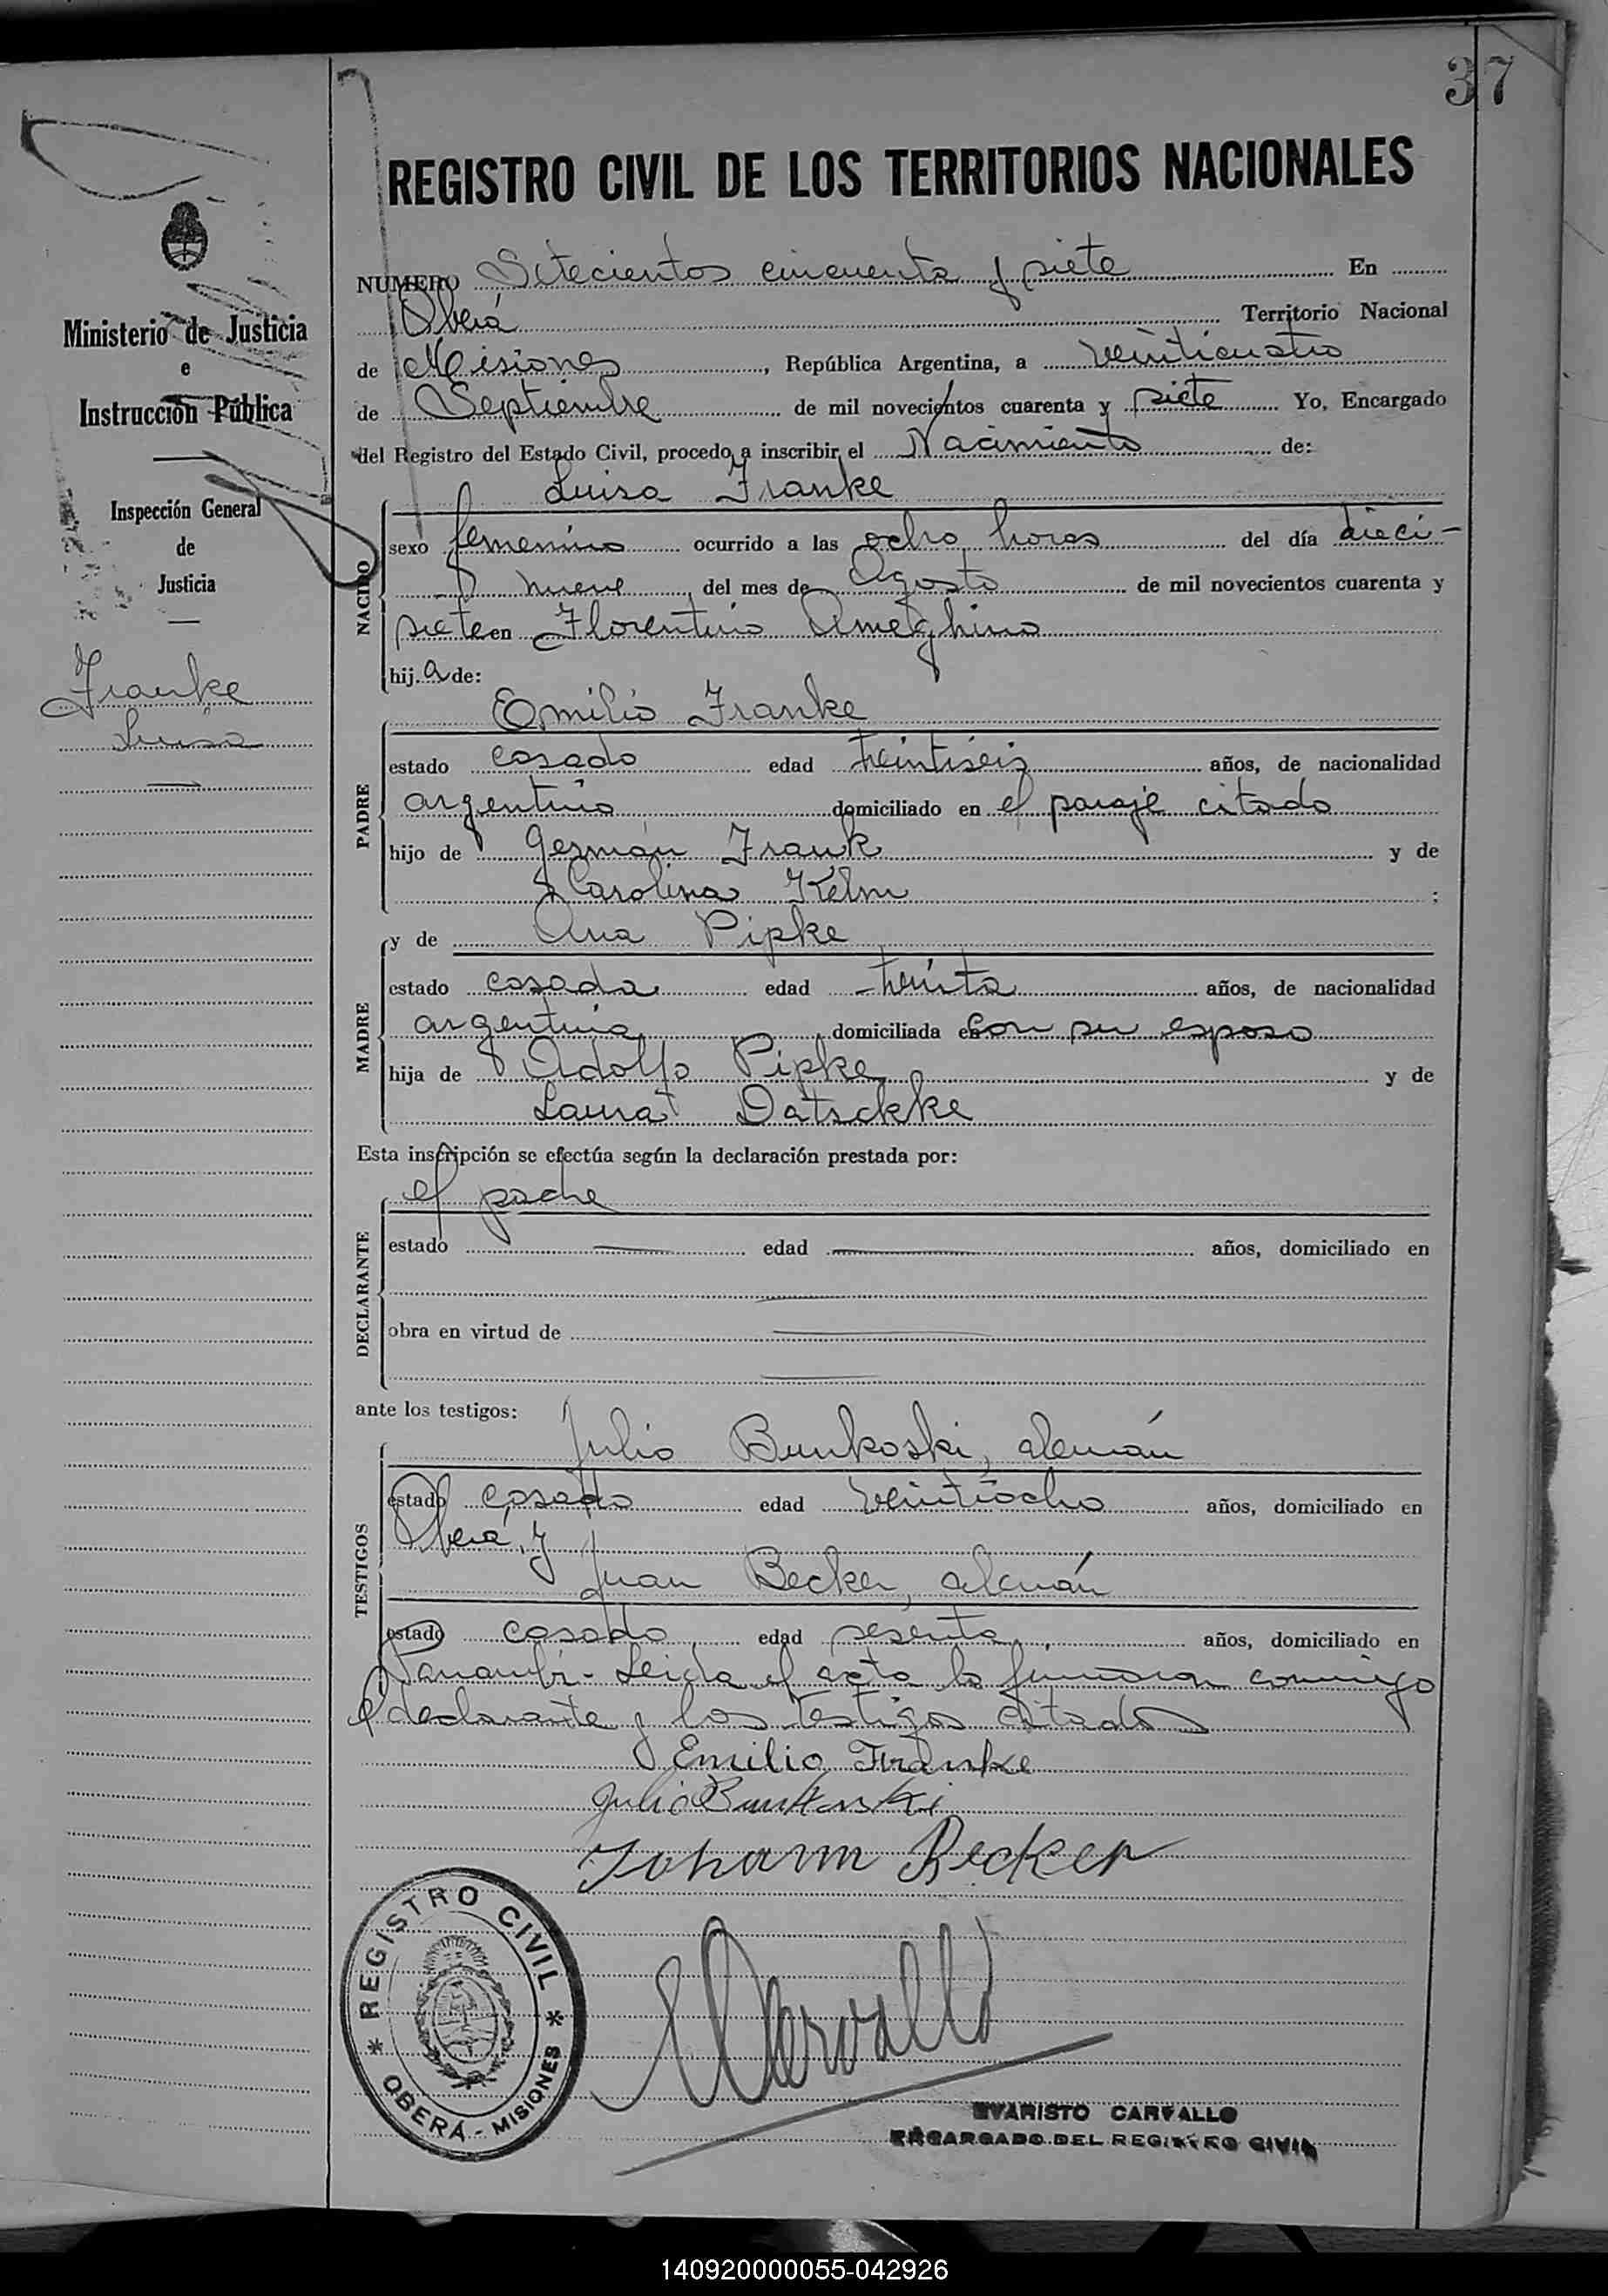 37
REGISTRO CIVIL DE LOS TERRITORIOS NACIONALES
Ministerio de Justicia
e
Instrucción Pública
Inspección General
de
Justicia
Franke
Luisa
NUMERO Setecientos cincuenta y siete En
Oberá Territorio Nacional
de Misiones, República Argentina, a veinticuatro
de Septiembre de mil novecientos cuarenta y siete Yo, Encargado
del Registro del Estado Civil, procedo a inscribir el Nacimiento de:
Luisa Franke
NACIDO
sexo femenino ocurrido a las ocho horas del día dieci-
nueve del mes de Agosto de mil novecientos cuarenta y
siete en Florentino Ameghino
hij.a de:
Emilio Franke
PADRE
estado casado edad treintiseis años, de nacionalidad
argentino domiciliado en el paraje citado
hijo de Germán Frank y de
Carolina Kelm ;
MADRE
y de Ana Pipke
estado casada edad treinta años, de nacionalidad
argentina domiciliada en con su esposo
hija de Adolfo Pipke y de
Laura Datsckke
Esta inscripción se efectúa según la declaración prestada por:
el padre
DECLARANTE
estado edad años, domiciliado en
obra en virtud de
ante los testigos:
Julio Bunkoski, alemán
TESTIGOS
estado casado edad veintiocho años, domiciliado en
Oberá, y
Juan Becker, alemán
estado casado edad sesenta, años, domiciliado en
Panambí.- Leida el acta la firmaron conmigo
el declarante y los testigos citados
Emilio Franke
Julio Bunkoski
Johann Becker
ECarvallo
REGISTRO CIVIL
OBERÁ - MISIONES
EVARISTO CARVALLO
ENCARGADO DEL REGISTRO CIVIL
140920000055-042926